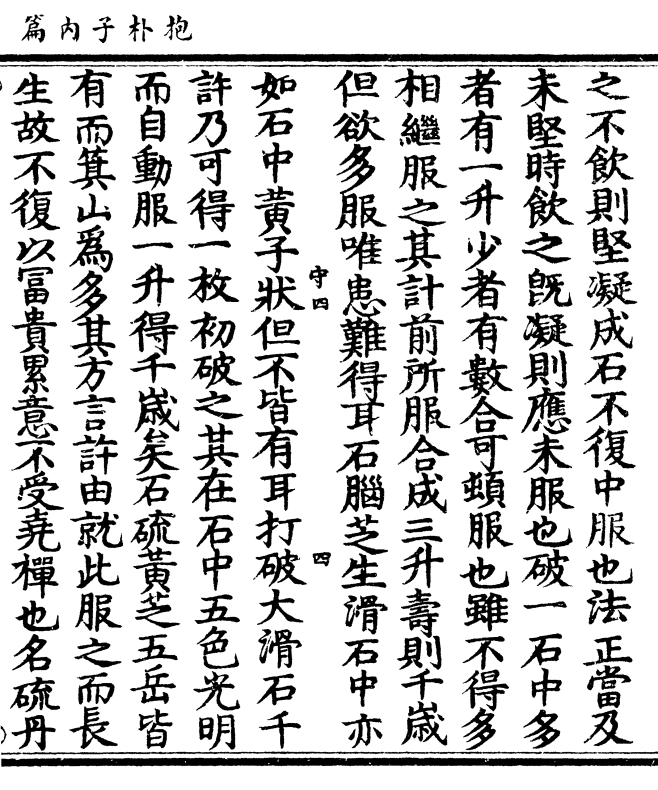 抱朴子内篇
之不飲則堅凝成石不復中服也法正當及
未堅時飲之旣凝則應未服也破一石中多
者有一升少者有數合可頓服也雖不得多
相繼服之其計前所服合成三升壽則千歳
但欲多服唯患難得耳石腦芝生滑石中亦
守四
四
如石中黃子狀但不皆有耳打破大滑石千
許乃可得一枚初破之其在石中五色光明
而自動服一升得千歳矣石硫黃芝五岳皆
有而箕山爲多其方言許由就此服之而長
生故不復以富貴累意不受堯禪也名硫丹